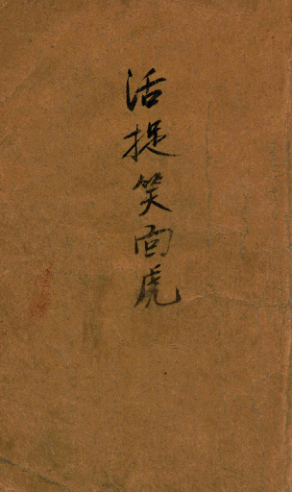 活捉笑面虎